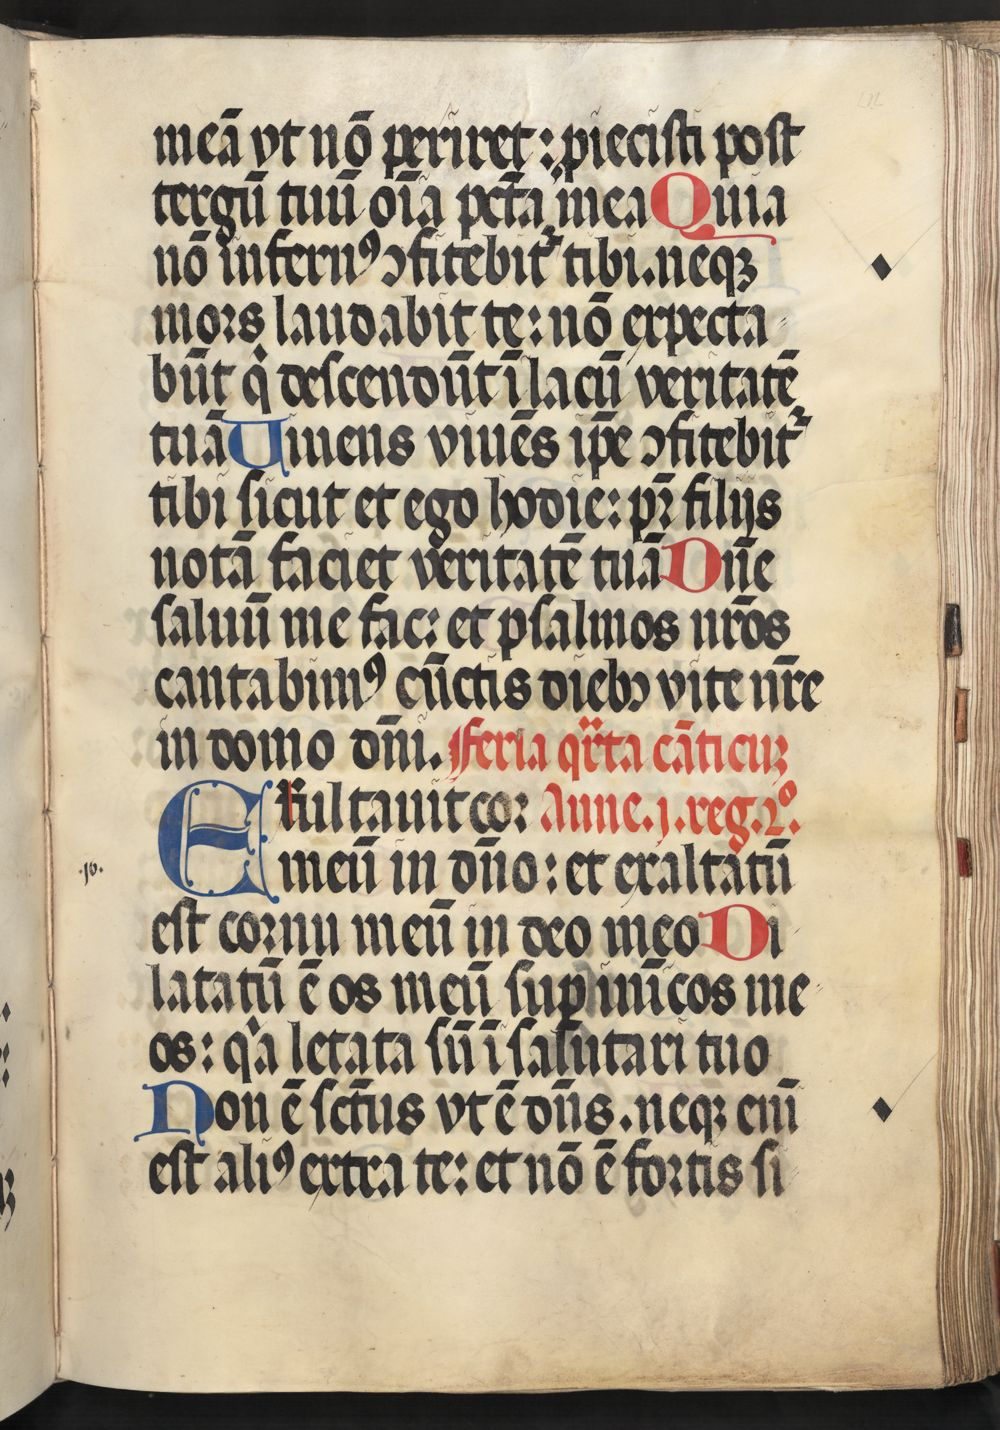 meā vt nō periret : piecisti post
tergū tuū oīa pctā mea Quia
nō infernꝰ ↄfitebit᷑ tibi . neqꝫ
mors laudabit te : nō expecta
būt q̇ descendūt ī lacū veritatē
tuā Uiuens viuēs ip̄e ↄfitebit᷑
tibi sicut et ego hodie : pr̄ filijs
notā faciet veritatē tuā Dn̄e
saluū me fac : et psalmos nr̄os
cantabimꝰ cūctis diebꝫ vite nr̄e
in domo dn̄i . Feria qrta cāticuꝫ
Exultauit cor Anne . j . reg . 2º .
meū in dn̄o : et exaltatū
·16·
est cornu meū in deo meo Di
latatū ē os meū suꝑ inīcos me
os : qa letata sū ī salutari tuo
Non ē sctūs vt ē dn̄s . neqꝫ eni̅
est aliꝰ extra te : et nō ē fortis si